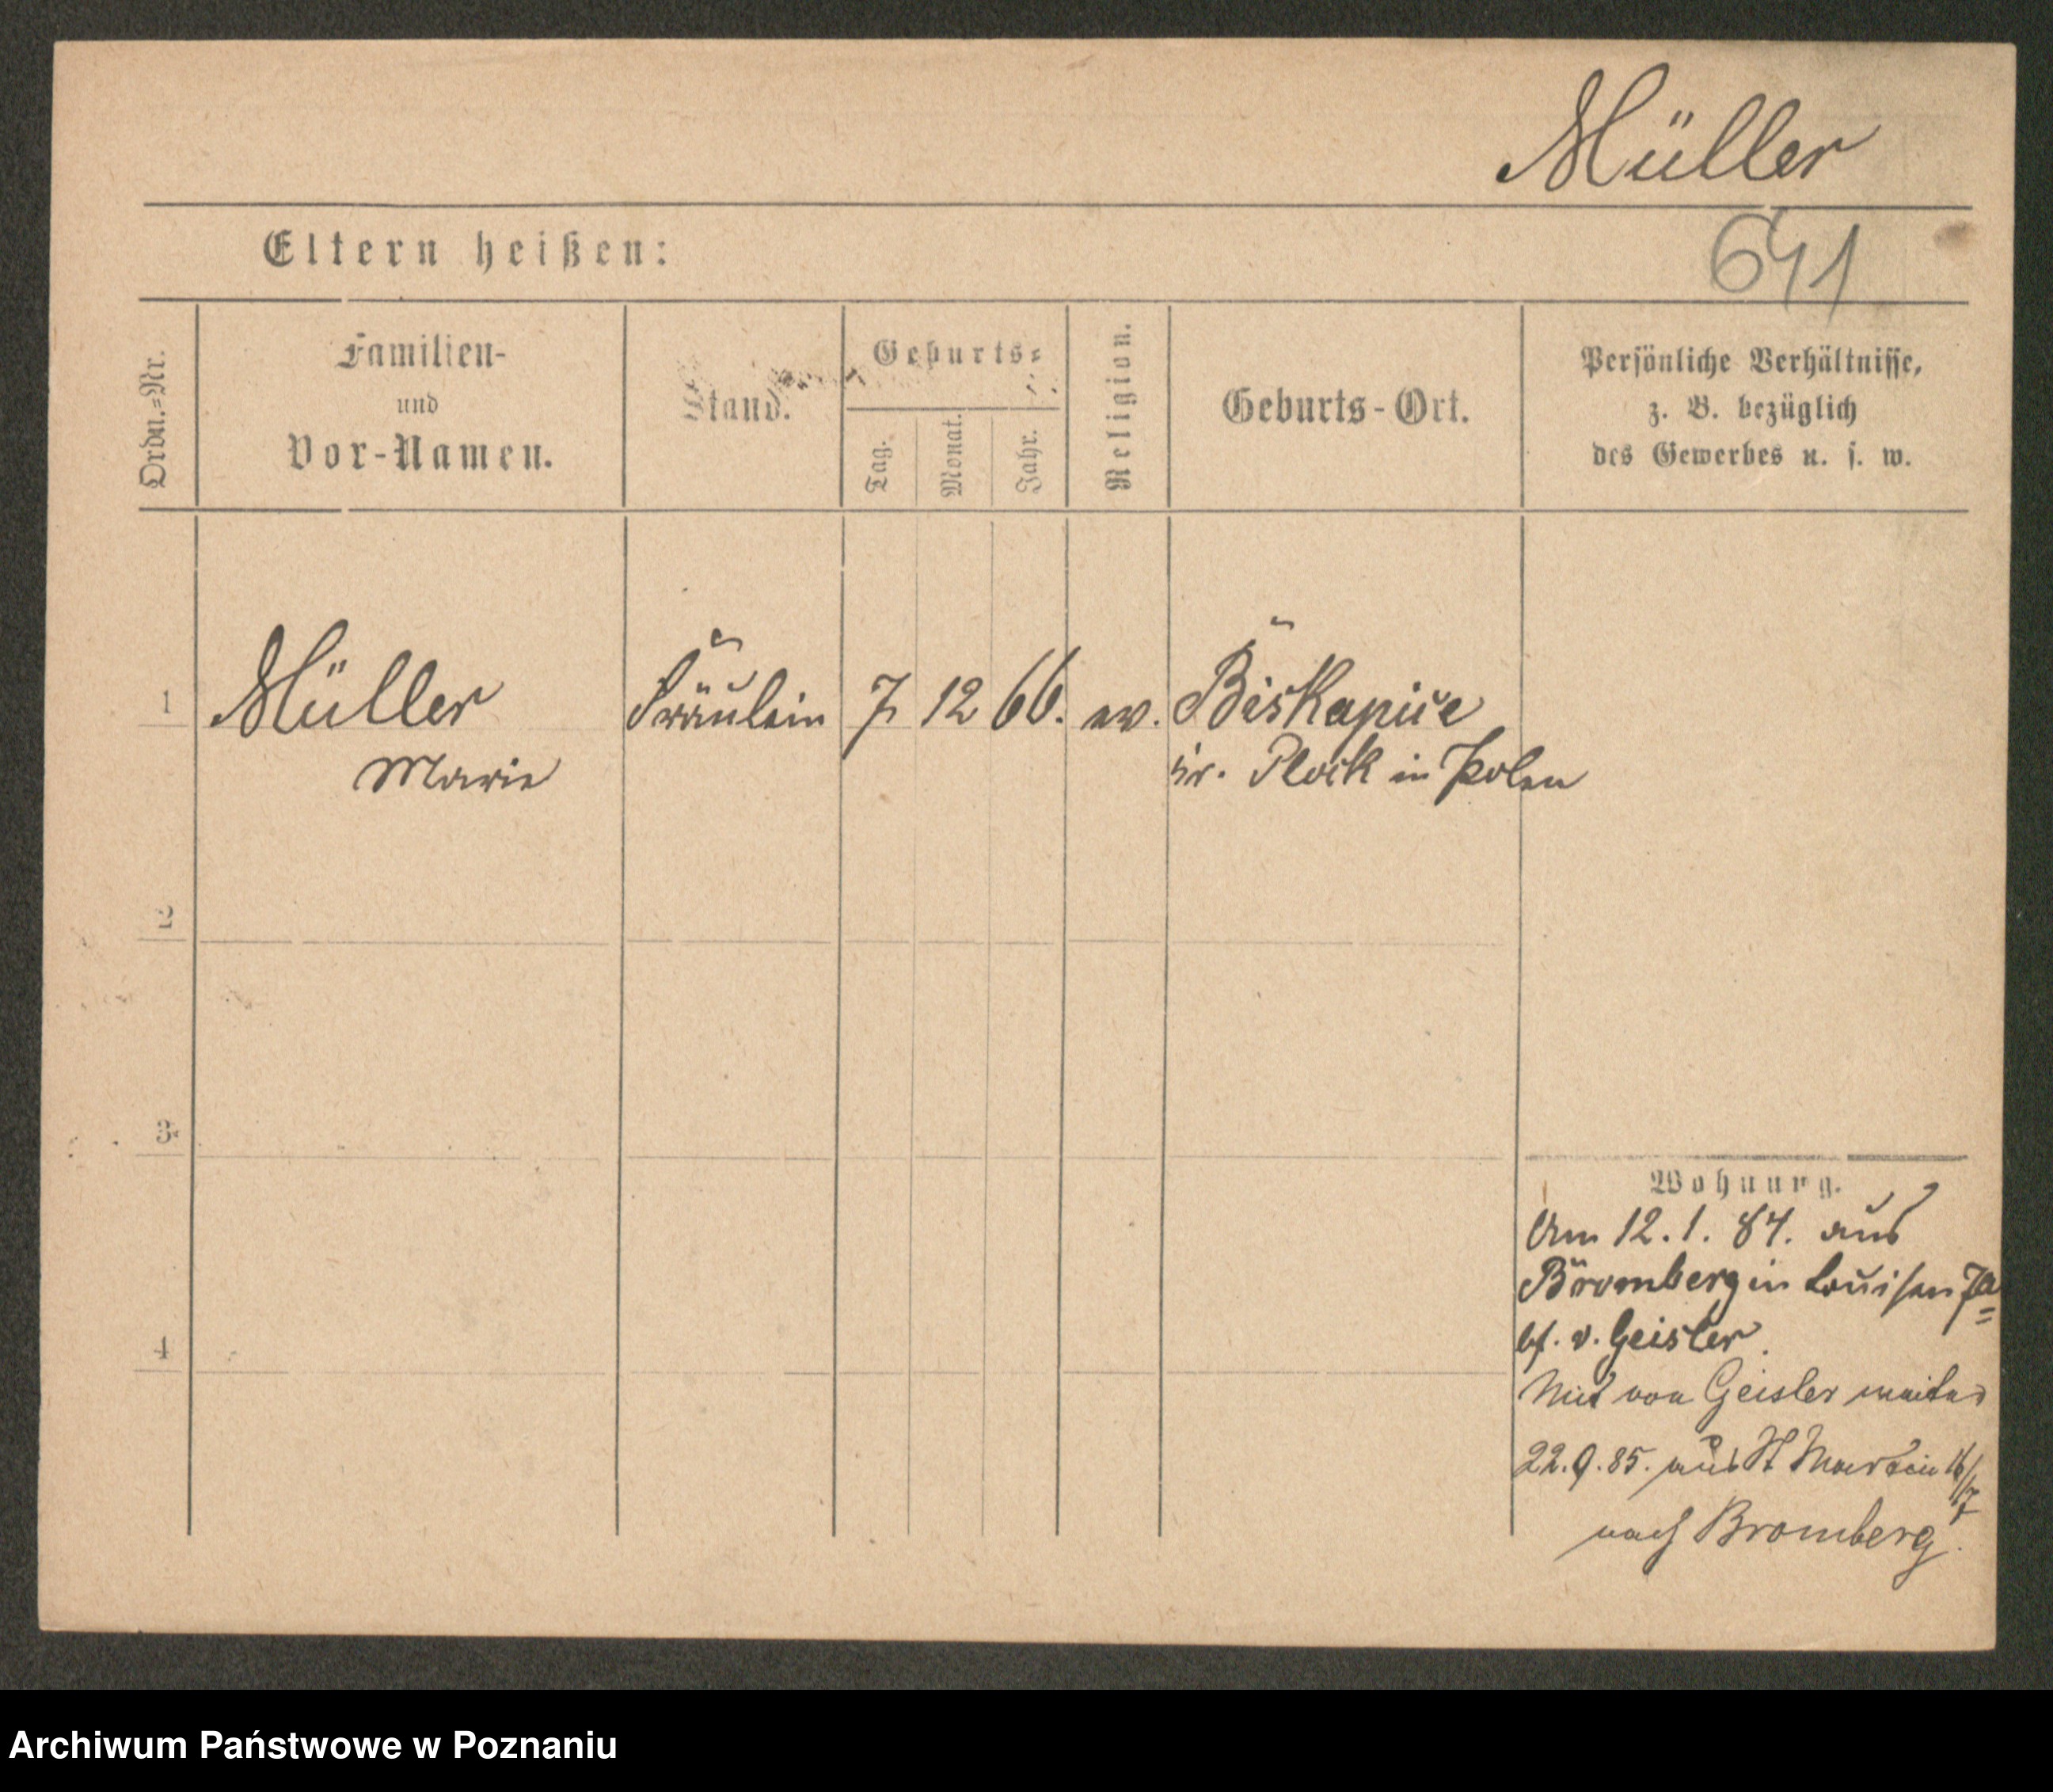 Müller
641
Eltern heißen:
Ordn.-Nr.
Familien-
und
Vor-Namen.
Stand.
Geburts-
Tag.
Monat.
Jahr.
Religion.
Geburts-Ort.
Persönliche Verhältnisse,
z. B. bezüglich
des Gewerbes u. s. w.
1 Müller Fräulein 7 12 66. ev. Biskupice
Marie Kr. Plock in Polen
2
3
Wohnung.
Am 12.1.84. aus
Bromberg in Louisen
4
bf. v. Geisler
Mit von Geisler weiter
22.9.85. aus St Martin 16/17
nach Bromberg.
Archiwum Państwowe w Poznaniu